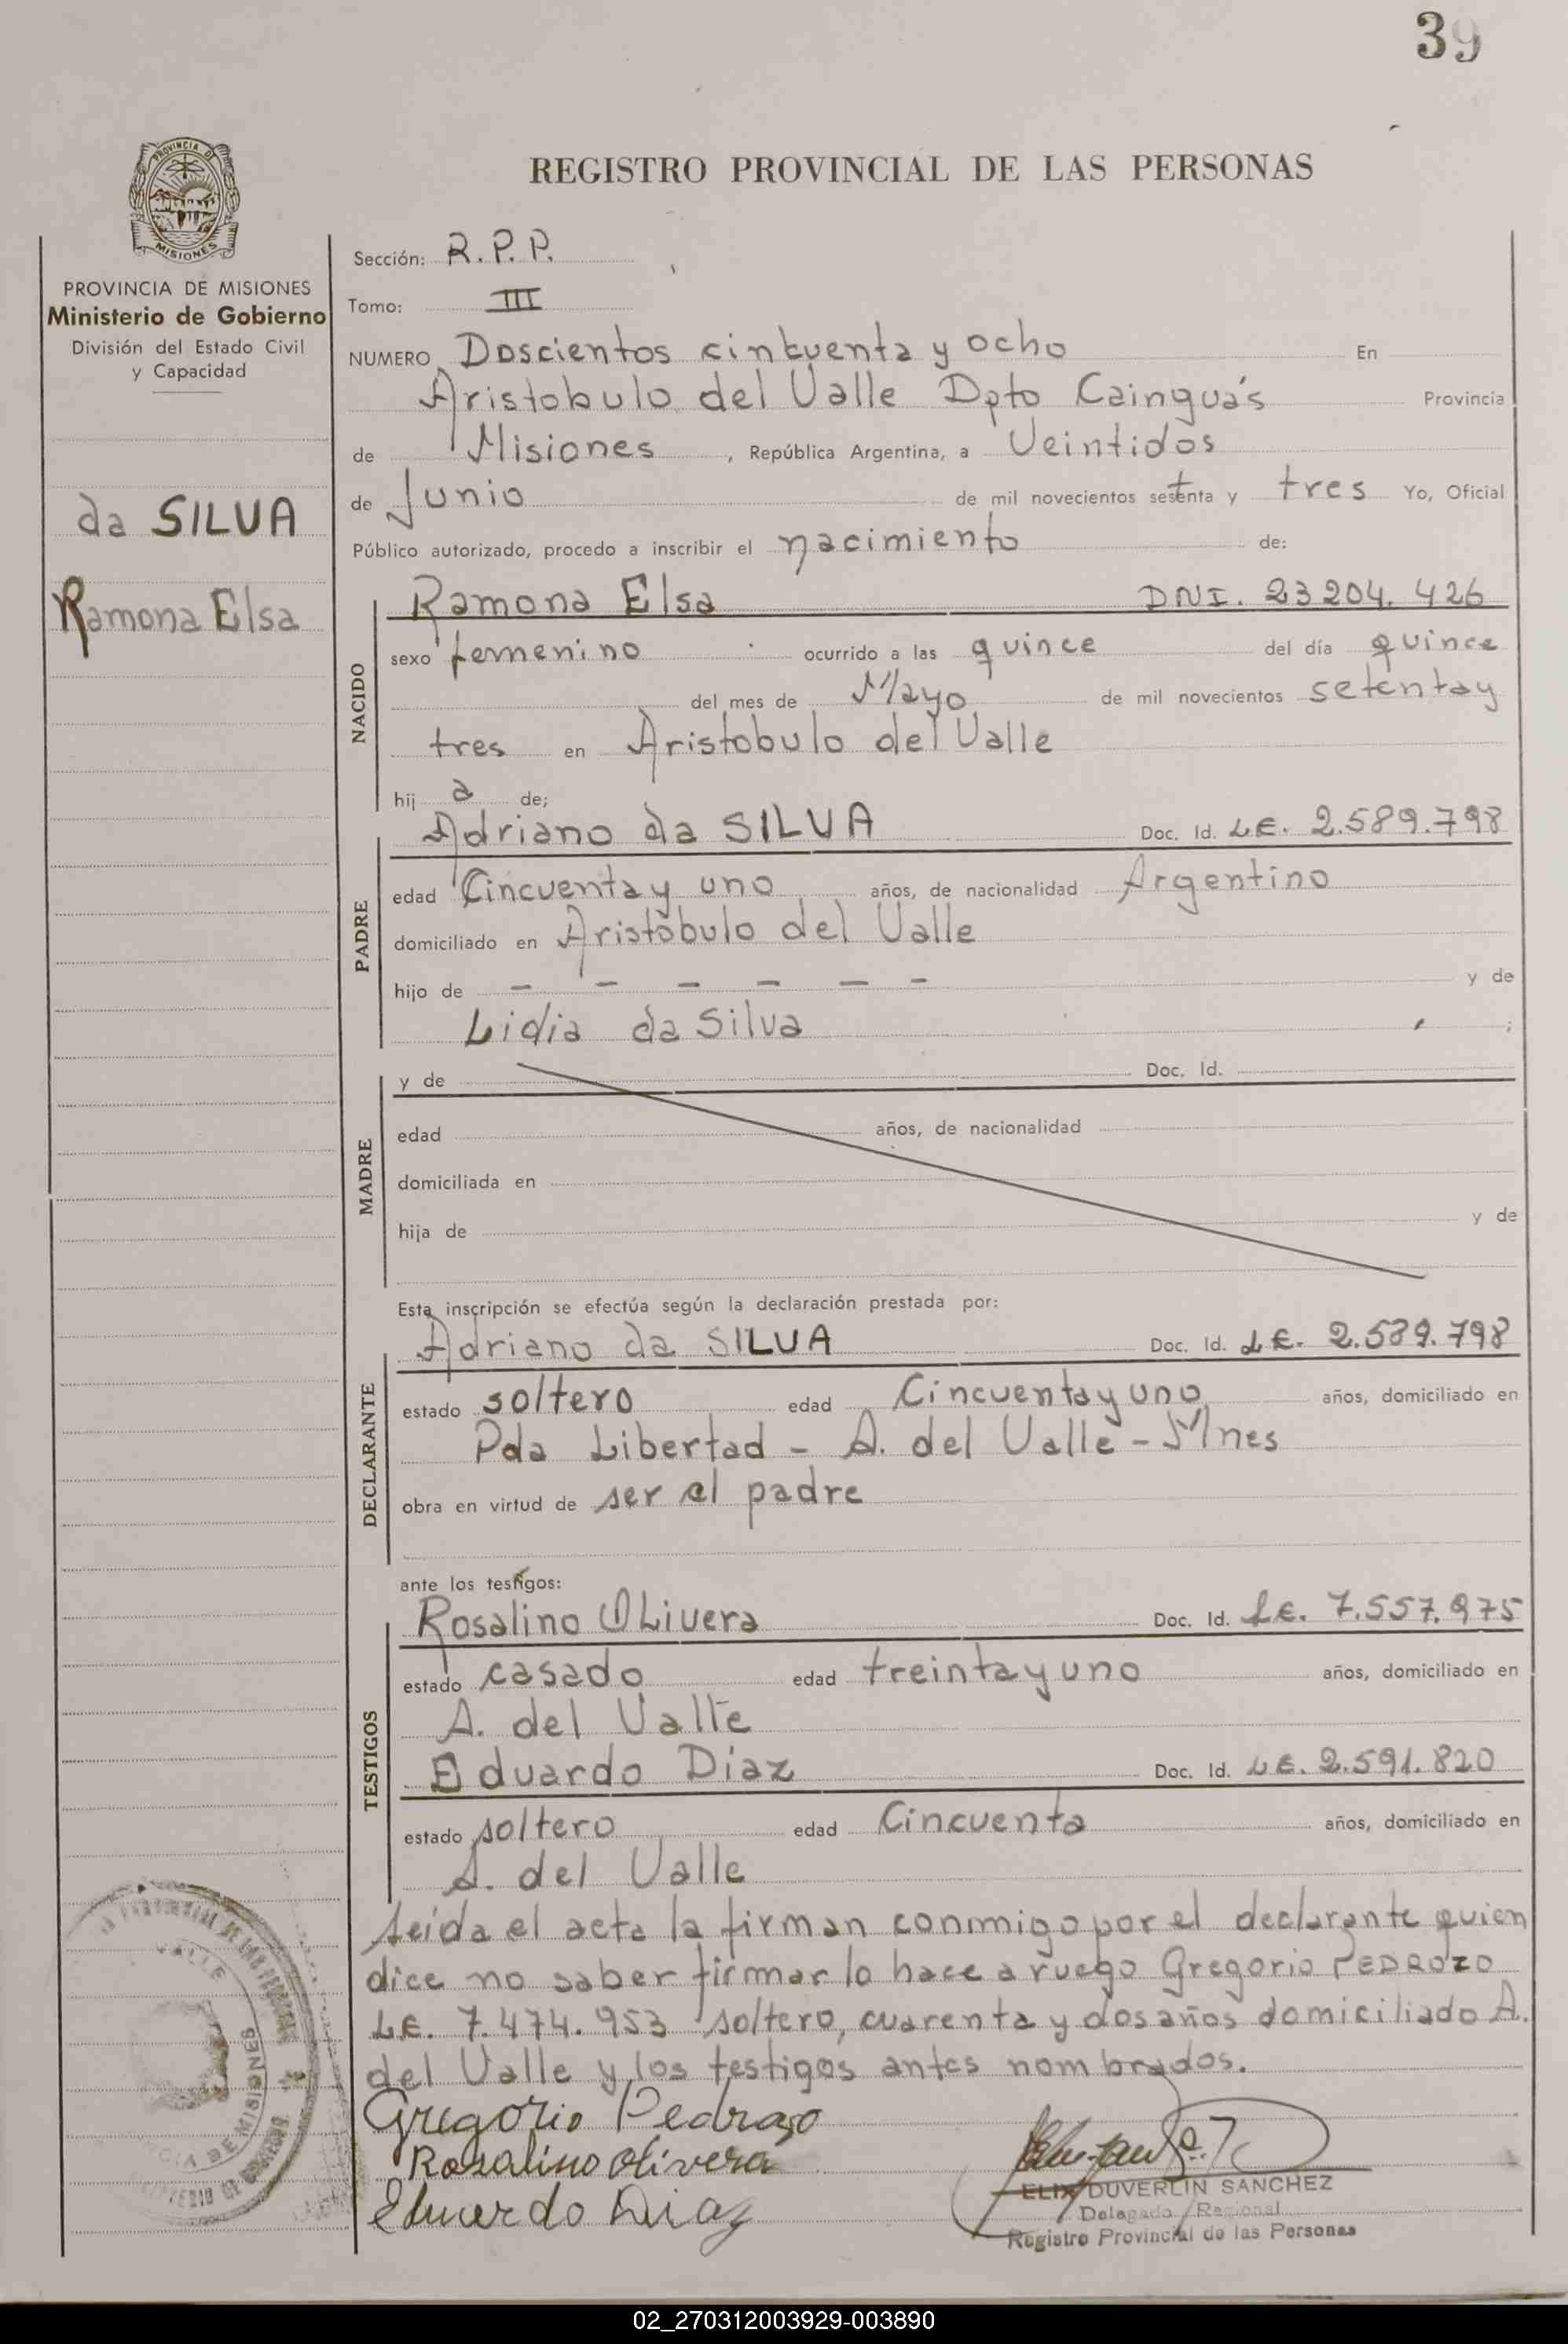 39
PROVINCIA DE
MISIONES
REGISTRO PROVINCIAL DE LAS PERSONAS
PROVINCIA DE MISIONES
Ministerio de Gobierno
División del Estado Civil
y Capacidad
da SILVA
Ramona Elsa
Sección: R.P.P.
Tomo: III
NUMERO Doscientos cinkuenta y ocho En
Aristobulo del Valle Dpto Cainguás Provincia
de Misiones, República Argentina, a Veintidos
de Junio de mil novecientos setenta y tres Yo, Oficial
Público autorizado, procedo a inscribir el nacimiento de:
NACIDO
Ramona Elsa DNI. 23204.426
sexo femenino ocurrido a las quince del día quince
del mes de Mayo de mil novecientos setentay
tres en Aristobulo del Valle
hij a de;
PADRE
Adriano da SILVA Doc. Id. LE. 2.589.798
edad Cincuentay uno años, de nacionalidad Argentino
domiciliado en Aristobulo del Valle
hijo de - - - - - - y de
Lidia da Silva ;
MADRE
y de Doc. Id.
edad años, de nacionalidad
domiciliada en
hija de y de
Esta inscripción se efectúa según la declaración prestada por:
DECLARANTE
Adriano da SILVA Doc. Id. LE. 2.589.798
estado soltero edad Cincuentay uno años, domiciliado en
Pda Libertad - A. del Valle - Mnes
obra en virtud de ser el padre
ante los testigos:
TESTIGOS
Rosalino OLivera Doc. Id. LE. 7.557.975
estado casado edad treintayuno años, domiciliado en
A. del Valle
Eduardo Diaz Doc. Id. LE. 2.591.820
estado soltero edad Cincuenta años, domiciliado en
A. del Valle
Leida el acta la firman conmigo por el declarante quien
dice no saber firmar lo hace a ruego Gregorio PEDROZO
LE. 7.474.953 soltero, cuarenta y dos años domiciliado A.
del Valle y los testigos antes nombrados.
Gregorio Pedrozo
Rosalino Olivera
Eduardo Diaz
ELIX DUVERLIN SANCHEZ
Delegado Regional
Registro Provincial de las Personas
PROVINCIAL DE LAS PERSONAS
VALLE
DE MISIONES
02_270312003929-003890